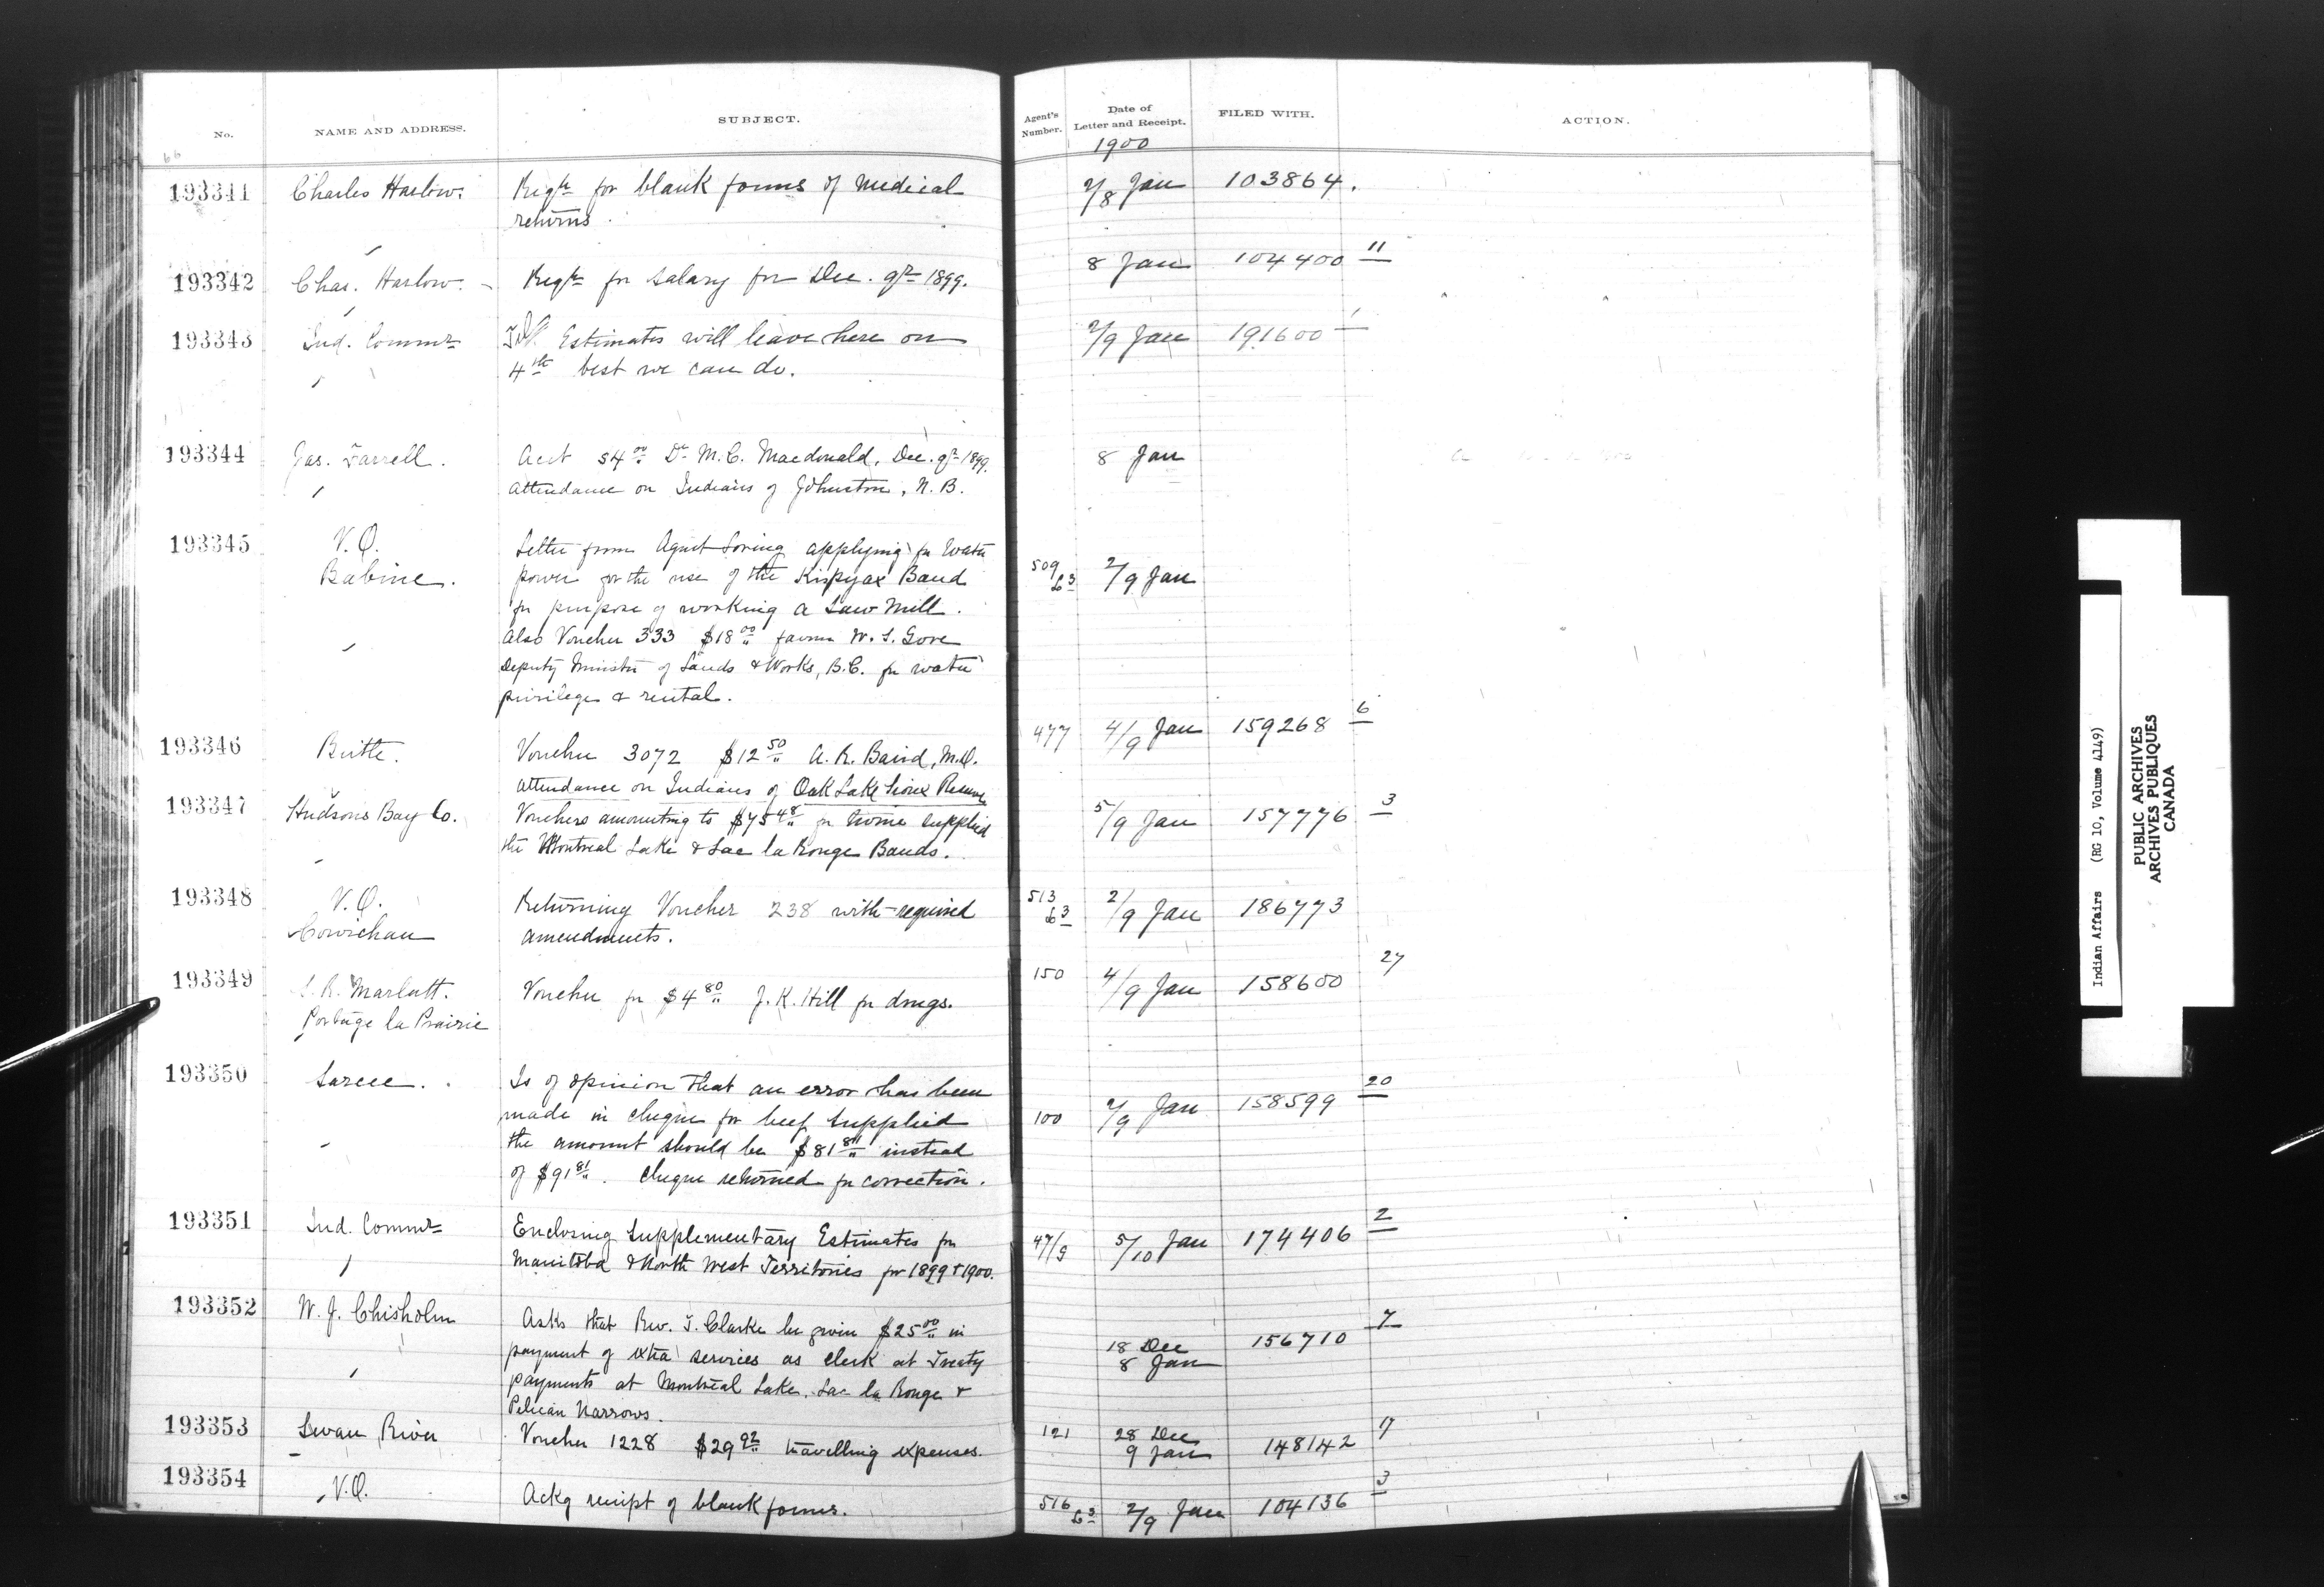 No. NAME AND ADDRESS. SUBJECT. Agent's Number. Date of Letter and Receipt. FILED WITH. ACTION.
66
1900
193341 Charles Harlow. Reqtn for blank forms of medical 2/8 Jan 103864.
returns.
193342 Chas. Harlow. Reqtn for salary for Dec. qr 1899. 8 Jan 104400 11
193343 Ind. Commr Estimates will leave here on 2/9 Jan 191600 1
4th best we can do.
193344 Jas. Farrell. Acct 54 00 Dr M.C. Macdonald, Dec. qr 1899. 8 Jan
attendance on Indians of Johnston, N.B.
193345 V.O. Letter from Agent Loring applying for water
Babine. power for the use of the Kispyax Band 509 L3 2/9 Jan
for purpose of working a Saw Mill.
Also Voucher 333 $18 00 favor W.S. Gore
Deputy Minister of Lands & Works, B.C. for water
privilege & rental.
193346 Birtle. Voucher 3072 $12 50 A.R. Baird, M.D. 477 4/9 Jan 159268 6
attendance on Indians of Oak Lake Sioux Reserve
193347 Hudsons Bay Co. Vouchers amounting to $75 48 for twine supplied 5/9 Jan 157776 3
the Montreal Lake & Lac la Ronge Bands.
193348 V.O. Returning Voucher 238 with required 513 L3 2/9 Jan 186773
Cowichan amendments.
193349 S.R. Marlatt. Voucher for $4 80 J.K. Hill for drugs. 150 4/9 Jan 158600 27
Portage la Prairie
193350 Sarcee. Is of opinion that an error has been
made in cheque for beef supplied 100 2/9 Jan 158599 20
the amount should be $81 81 instead
of $91 81. Cheque returned for correction.
193351 Ind. Commr Enclosing Supplementary Estimates for 47/9 5/10 Jan 174406 2
Manitoba & North West Territories for 1899 & 1900.
193352 W.J. Chisholm Asks that Rev. J. Clarke be given $25 00 in 18 Dec 156710 7
payment of extra services as clerk at Treaty 8 Jan
payments at Montreal Lake, Lac la Ronge &
Pelican Narrows.
193353 Swan River Voucher 1228 $29 92 travelling expenses. 121 28 Dec 148142 17
9 Jan
193354 V.O. Ackg receipt of blank forms. 516 L3 2/9 Jan 104136 3
Indian Affairs (RG 10, Volume 4149)
PUBLIC ARCHIVES
ARCHIVES PUBLIQUES
CANADA